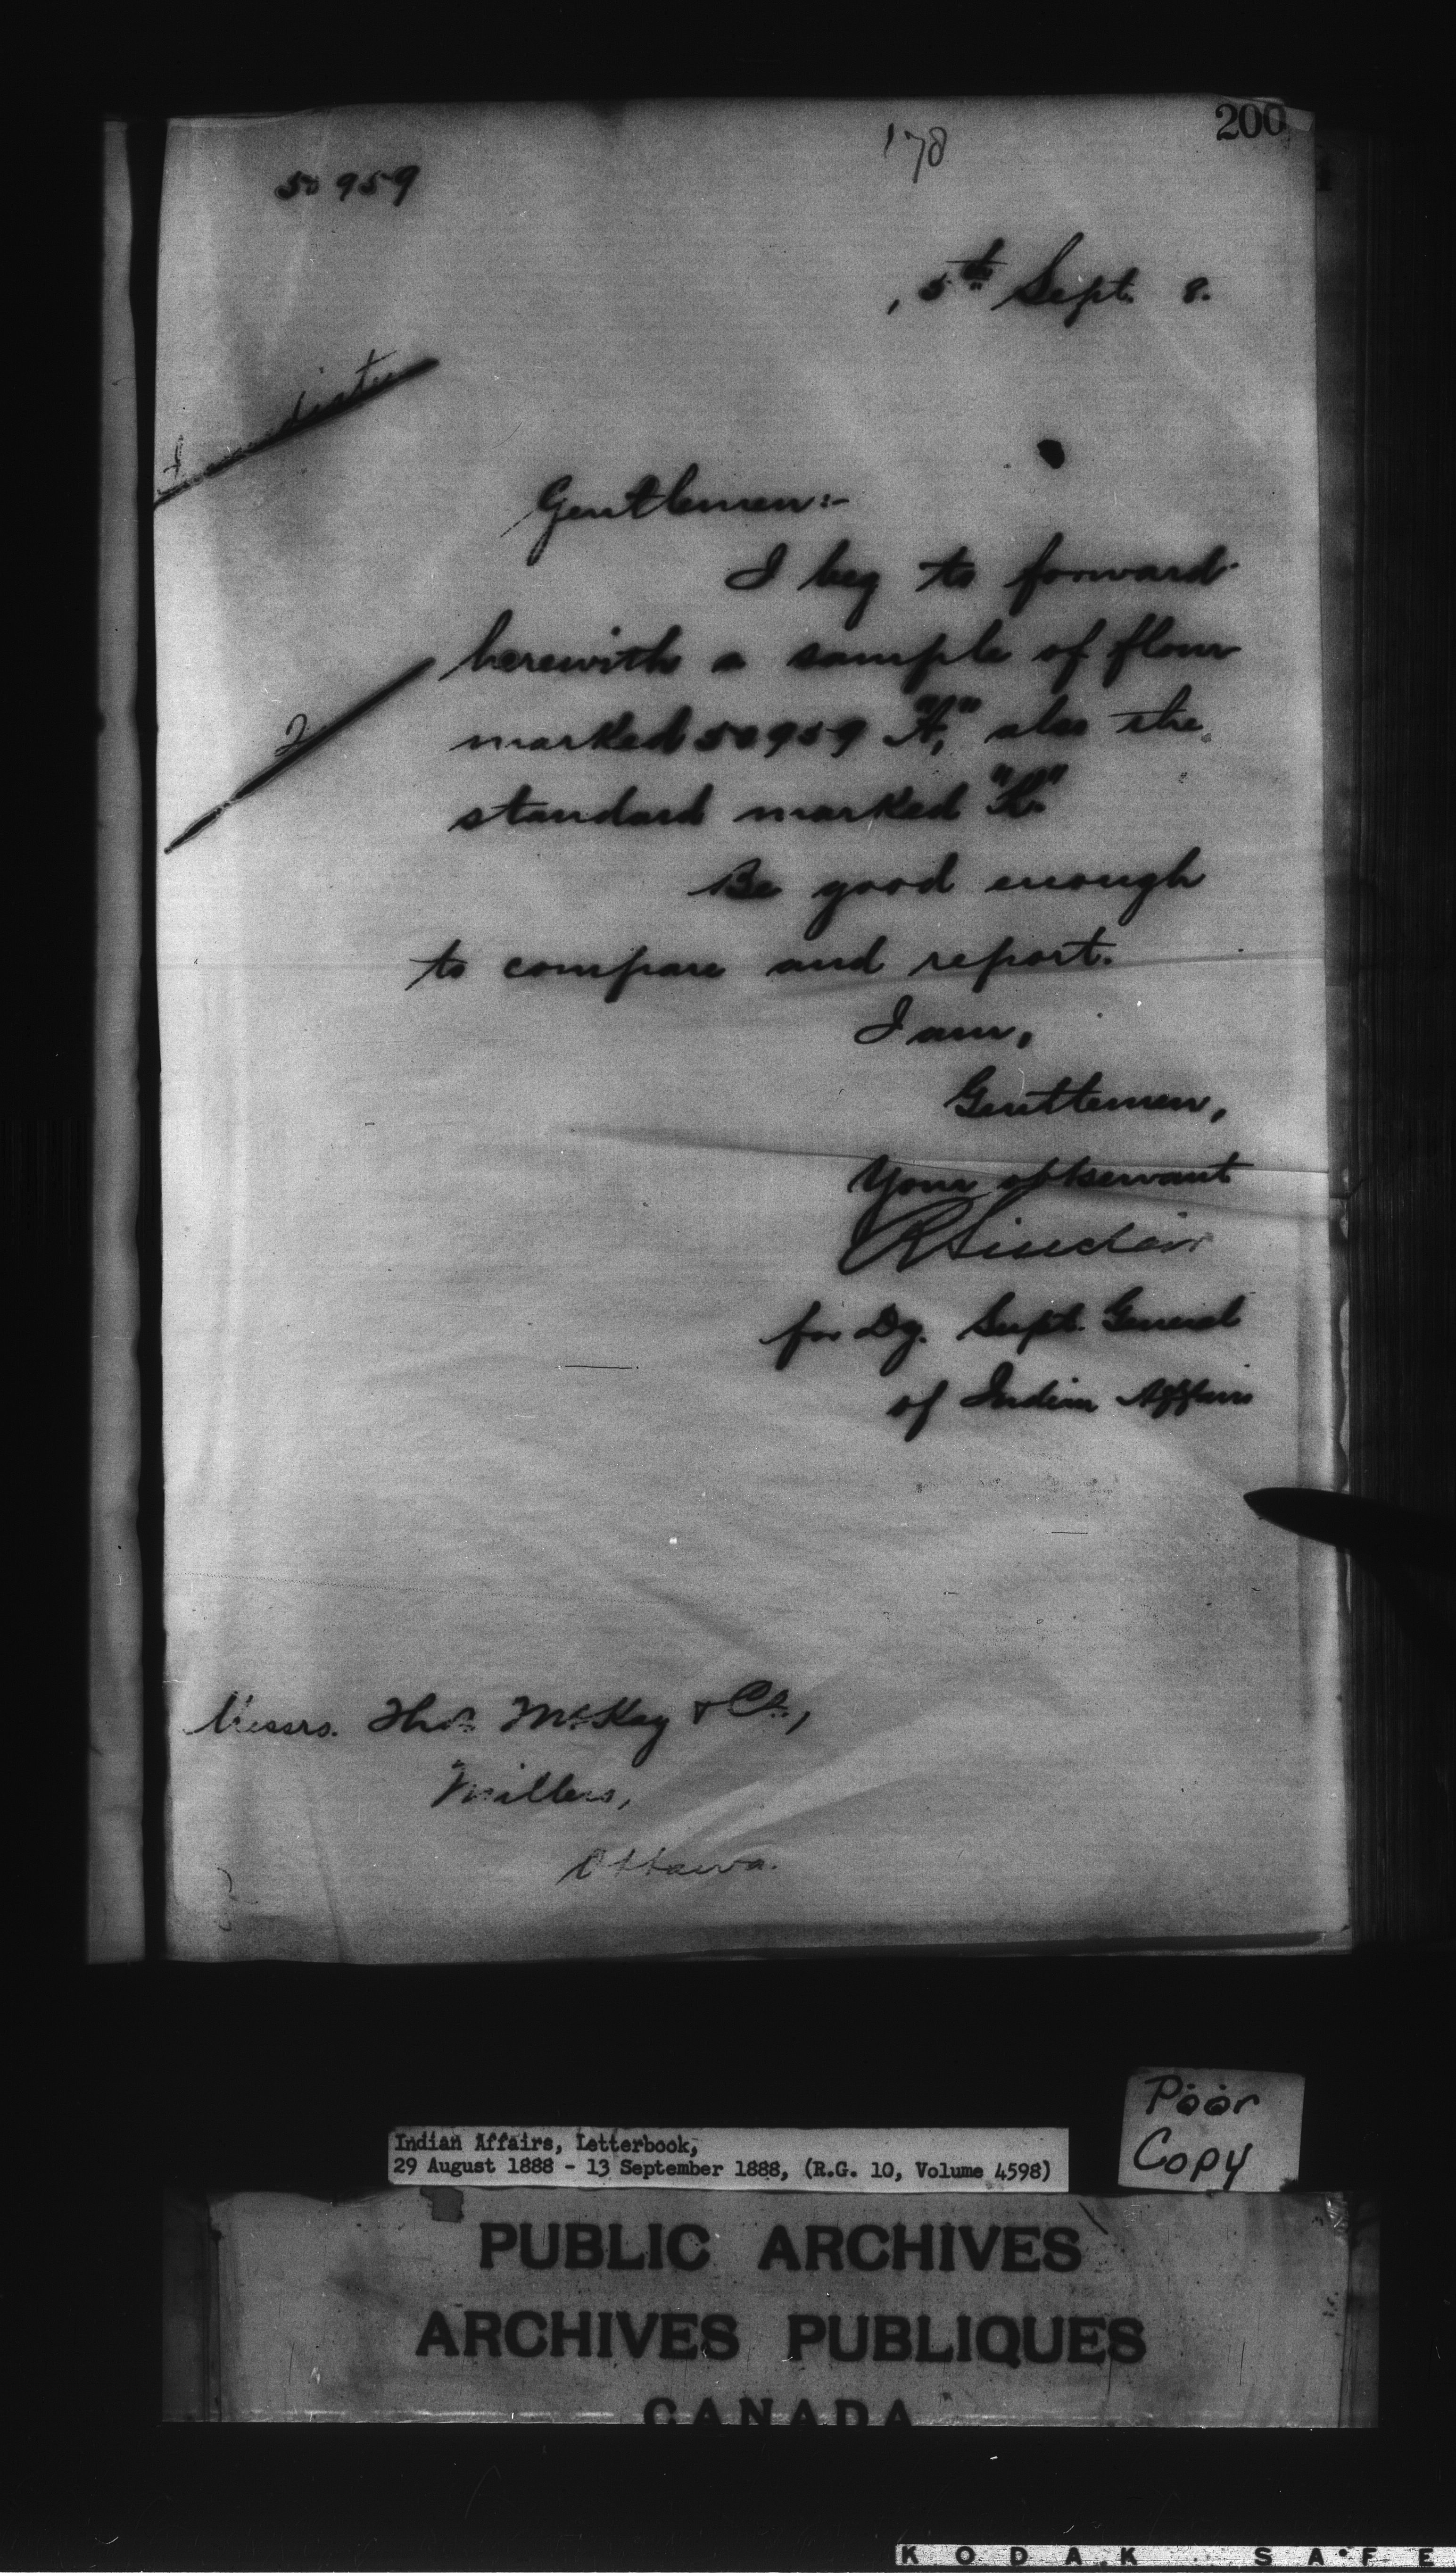 200
178
50959
, 5th Sept. 8.
Immediate
Gentlemen:-
I beg to forward
herewith a sample of flour
2
marked 50959 "A," also the
standard marked
Be good enough
to compare and report.
I am,
Gentlemen,
Your obt servant
R Sinclair
for Dy. Supt. General
of Indian Affairs
Messrs. Thos. McKay & Co.,
Millers,
Ottawa.
Poor
Copy
Indian Affairs, Letterbook,
29 August 1888 - 13 September 1888, (R.G. 10, Volume 4598)
PUBLIC ARCHIVES
ARCHIVES PUBLIQUES
CANADA
KODAK SAFE